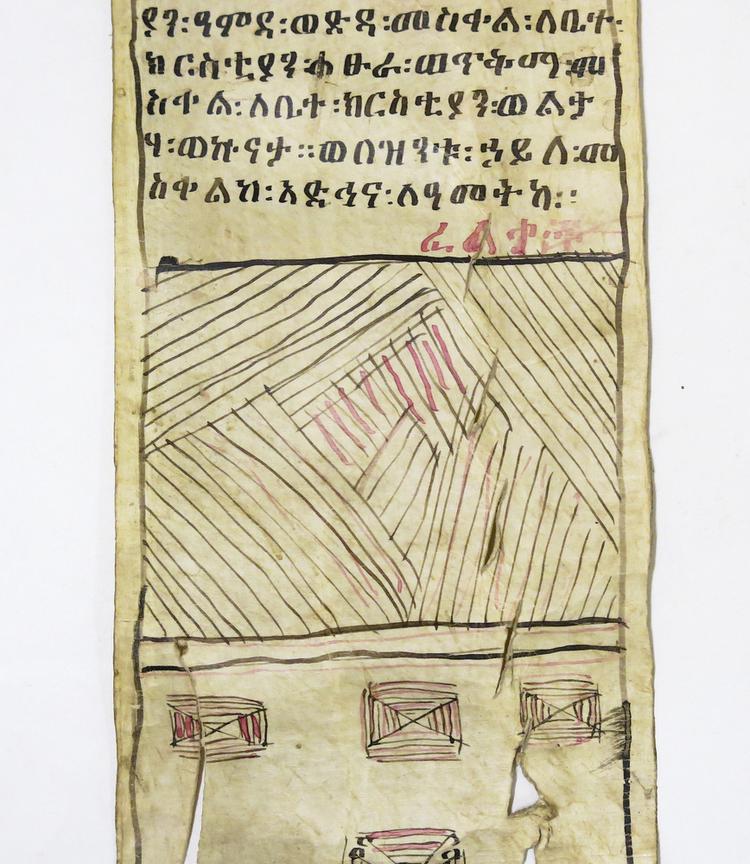 ያን፡ዓምደ፡ወጽዳ፡መስቀል፡ለቤተ፡
ክርስቲያን፡ሐፁራ፡ወጥቅማ፡መ
ስቀል፡ለቤተ፡ክርስቲያን፡ወልታ
ሃ፡ወኵናታ፡፡ወበዝንቱ፡ኃይለ፡መ
ስቀልከ፡አድኅና፡ለዓመትከ፡፡